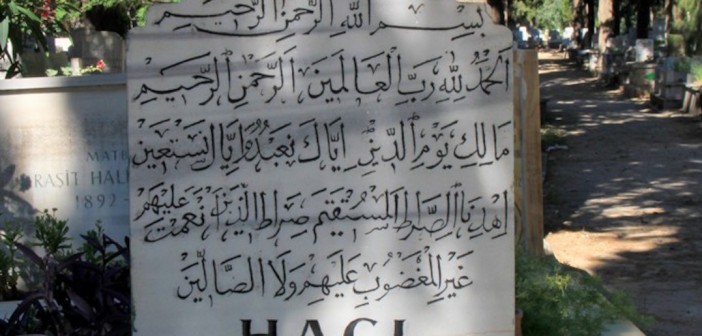 بِسْمِ اللهِ الرَّحْمٰنِ الرَّحِيمِ
اَلْحَمْدُ لِلّٰهِ رَبِّ الْعَالَمِينَ اَلرَّحْمٰنِ الرَّحِيمِ
مَالِكِ يَوْمِ الدِّينِ اِيَّاكَ نَعْبُدُ وَاِيَّاكَ نَسْتَعِينُ
اِهْدِنَا الصِّرَاطَ الْمُسْتَقِيمَ صِرَاطَ الَّذِينَ اَنْعَمْتَ عَلَيْهِمْ
غَيْرِ الْمَغْضُوبِ عَلَيْهِمْ وَلَا الضَّالِّينَ
HACI
MATB
RAŞİT HALİ
1892 -